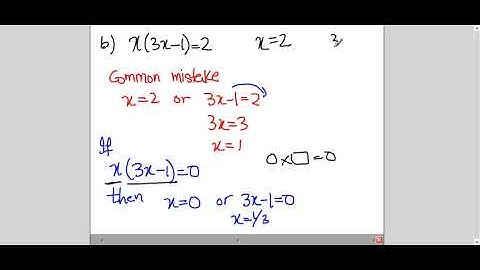 b) x(3x-1)=2 x=2 3x
Common mistake
x=2 or 3x-1=2
3x=3
x=1
If
x(3x-1)=0 0×□=0
then x=0 or 3x-1=0
x=1/3